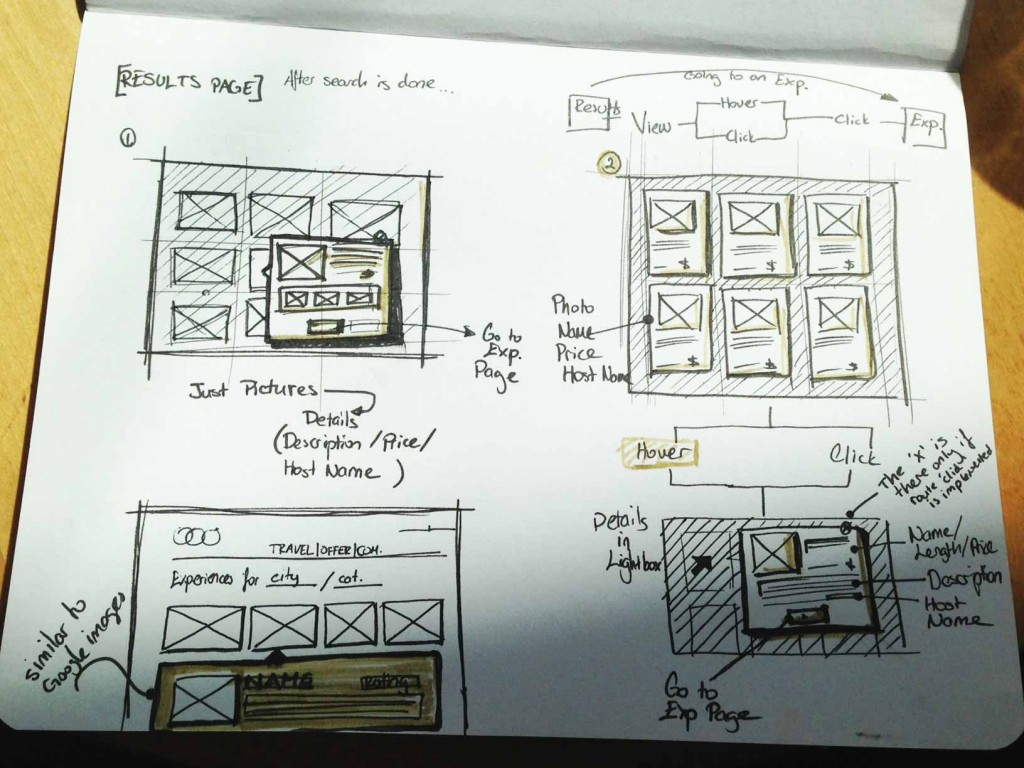 [RESULTS PAGE] After search is done...
Going to an Exp.
Results
View
Hover
Click
Click
Exp.
1
Go to
Exp.
Page
Just Pictures
Details
(Description/Price/
Host Name)
2
Photo
Name
Price
Host Name
$ $ $
$ $ $
Hover
Click
The 'x' is
there only if
route 'click'
is implemented
Details
in
Lightbox
Name/
Length/Price
Description
Host
Name
Go to
Exp Page
TRAVEL/OFFER/COM.
Experiences for city / cat.
similar to
Google images
NAME
Rating